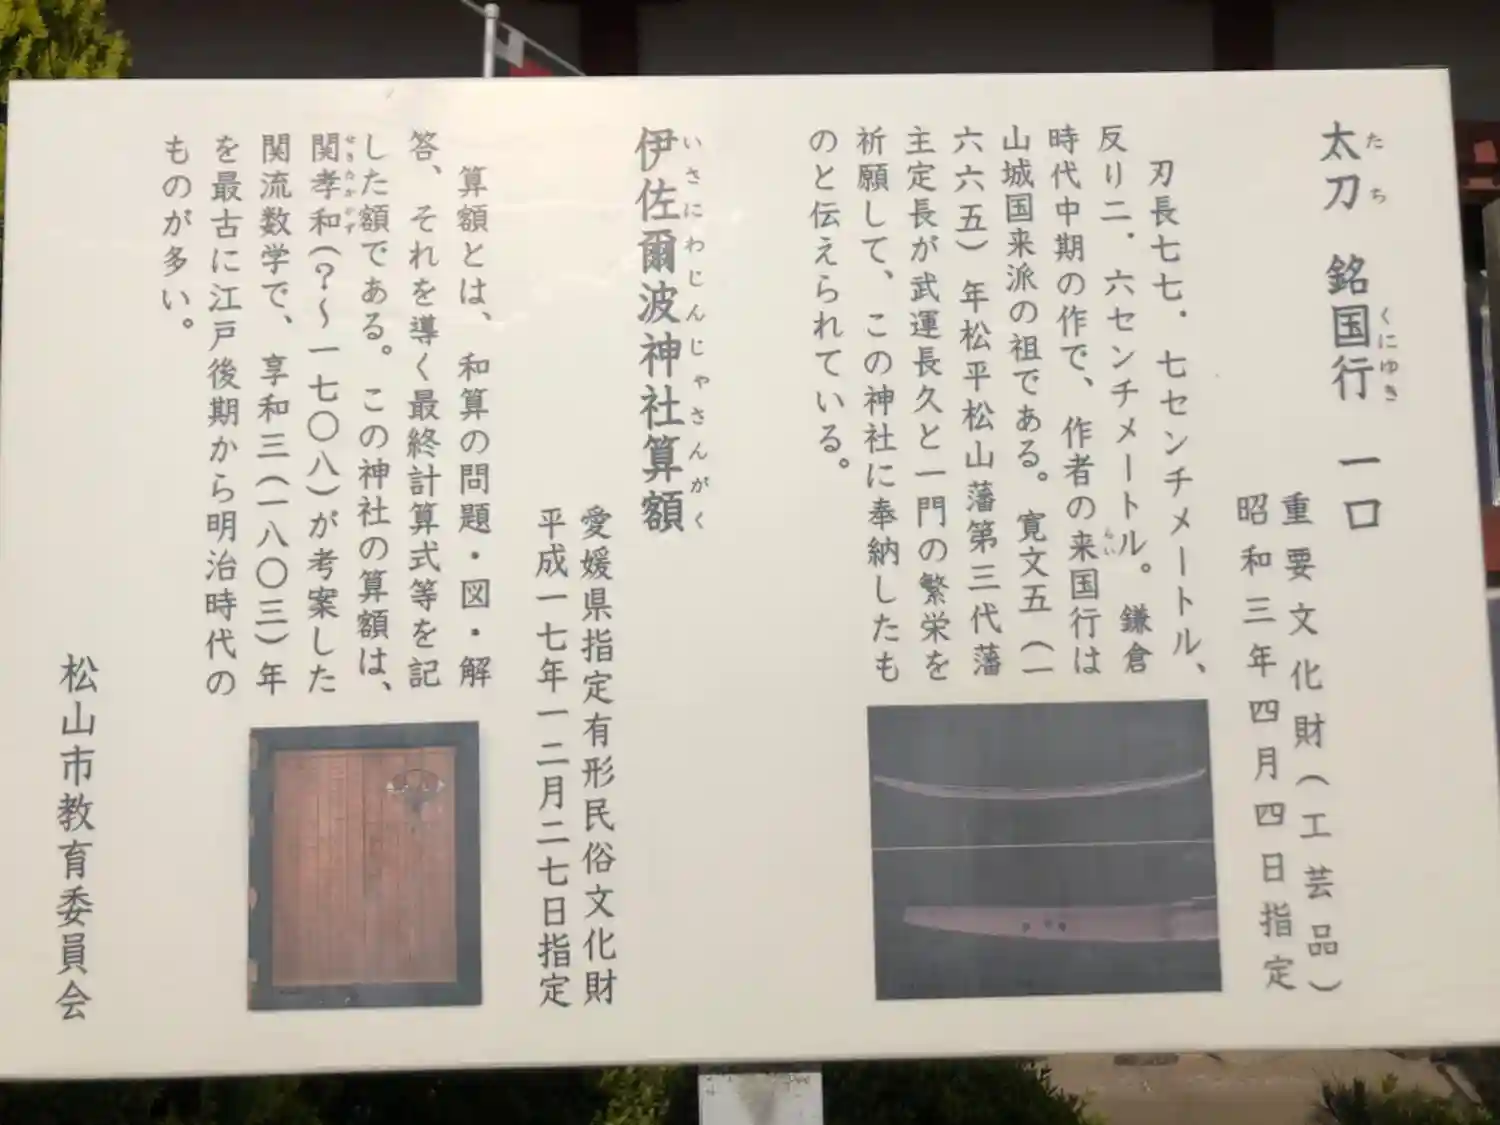 太刀　銘国行　一口
たち　くにゆき
重要文化財(工芸品)
昭和三年四月四日指定
刃長七七．七センチメートル、
反り二．六センチメートル。鎌倉
時代中期の作で、作者の来国行は
らい
山城国来派の祖である。寛文五(一
六六五)年松平松山藩第三代藩
主定長が武運長久と一門の繁栄を
祈願して、この神社に奉納したも
のと伝えられている。
伊佐爾波神社算額
いさにわじんじゃさんがく
愛媛県指定有形民俗文化財
平成一七年一二月二七日指定
算額とは、和算の問題・図・解
答、それを導く最終計算式等を記
した額である。この神社の算額は、
関孝和(？～一七〇八)が考案した
せきたかかず
関流数学で、享和三(一八〇三)年
を最古に江戸後期から明治時代の
ものが多い。
松山市教育委員会